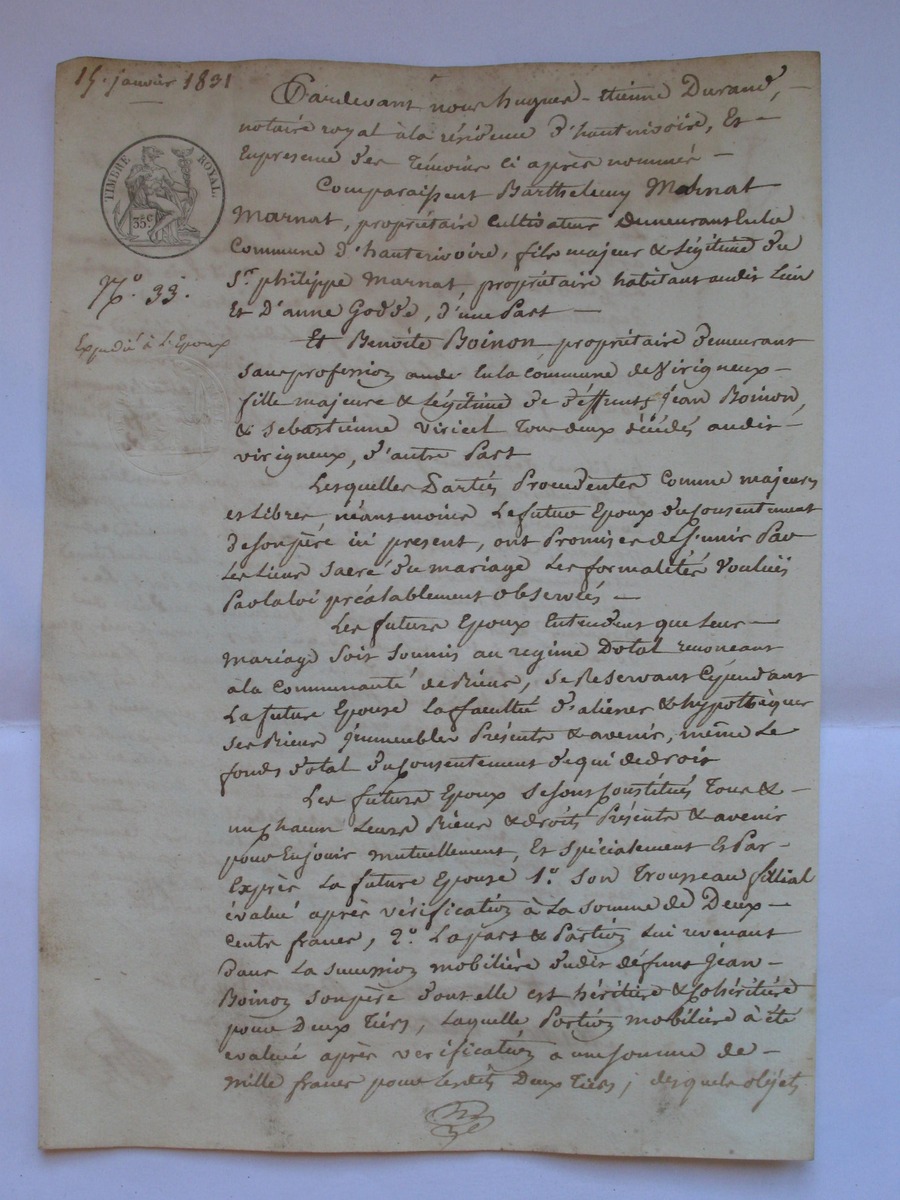 15. janvier 1831
TIMBRE ROYAL
35 c.
N.º 33.
Expédié à l'Epoux
Pardevant nous hugues-étienne Durand,
notaire royal à la résidence d'hauterivoire, Et
En presence des Témoins ci après nommés
Comparaissent Barthelemy Marnat
Marnat, propriétaire cultivateur demeurant En la
Commune d'hauterivoire, fils majeur & légitime du
S.r philippe Marnat, propriétaire habitant audit Lieu
Et D'anne Goddé, d'une Part
Et Benoite Boinon propriétaire demeurant
sans profession En la Commune de Virigneux
fille majeure & Légitime de déffunts Jean Boinon,
& sebastienne viricel Tous deux décédés audit
virigneux, d'autre Part
Lesquelles Parties Procedentes comme majeurs
et Libres, néantmoins Le futur Epoux du Consentement
de son père ici present, ont Promis de S'unir Par
Les Liens sacré du mariage Les formalités Vouluës
Par la loi préalablement observées
Les futurs Epoux Entendent que leur
mariage soit soumis au regime Dotal renoncant
à la Communauté de Biens, se Reservant Cependant
La future Epouse la faculté d'aliéner & hypothèquer
ses Biens Jmmeubles Présents & avenir, même Le
fonds dotal du Consentement de qui de droit
Les futurs Epoux se sont Constitués Tous &
un chacun leurs Biens & droits Présents & avenir
pour En jouir mutuellement, Et spécialement Et Par
Exprès La future Epouse 1.º son Trousseau filial
évalué après vérification à La somme de Deux
cents francs, 2.º La part & Portion lui revenant
dans La succession mobilière dudit défunt Jean
Boinon son père dont elle est héritière & Cohéritière
pour Deux Tiers, Laquelle Portion mobilière à été
évaluée après verification à une somme de
mille francs pour Lesdits Deux Tiers; desquels objets